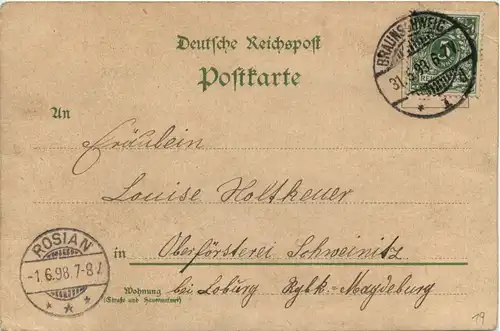 Deutsche Reichspost
Postkarte
BRAUNSCHWEIG
31.5.98
5
An
Fräulein
Louise Holtheuer
in Oberförsterei Schweinitz
Wohnung bei Loburg Rgbk. Magdeburg
(Straße und Hausnummer)
ROSIAN
-1.6.98.7-8
19